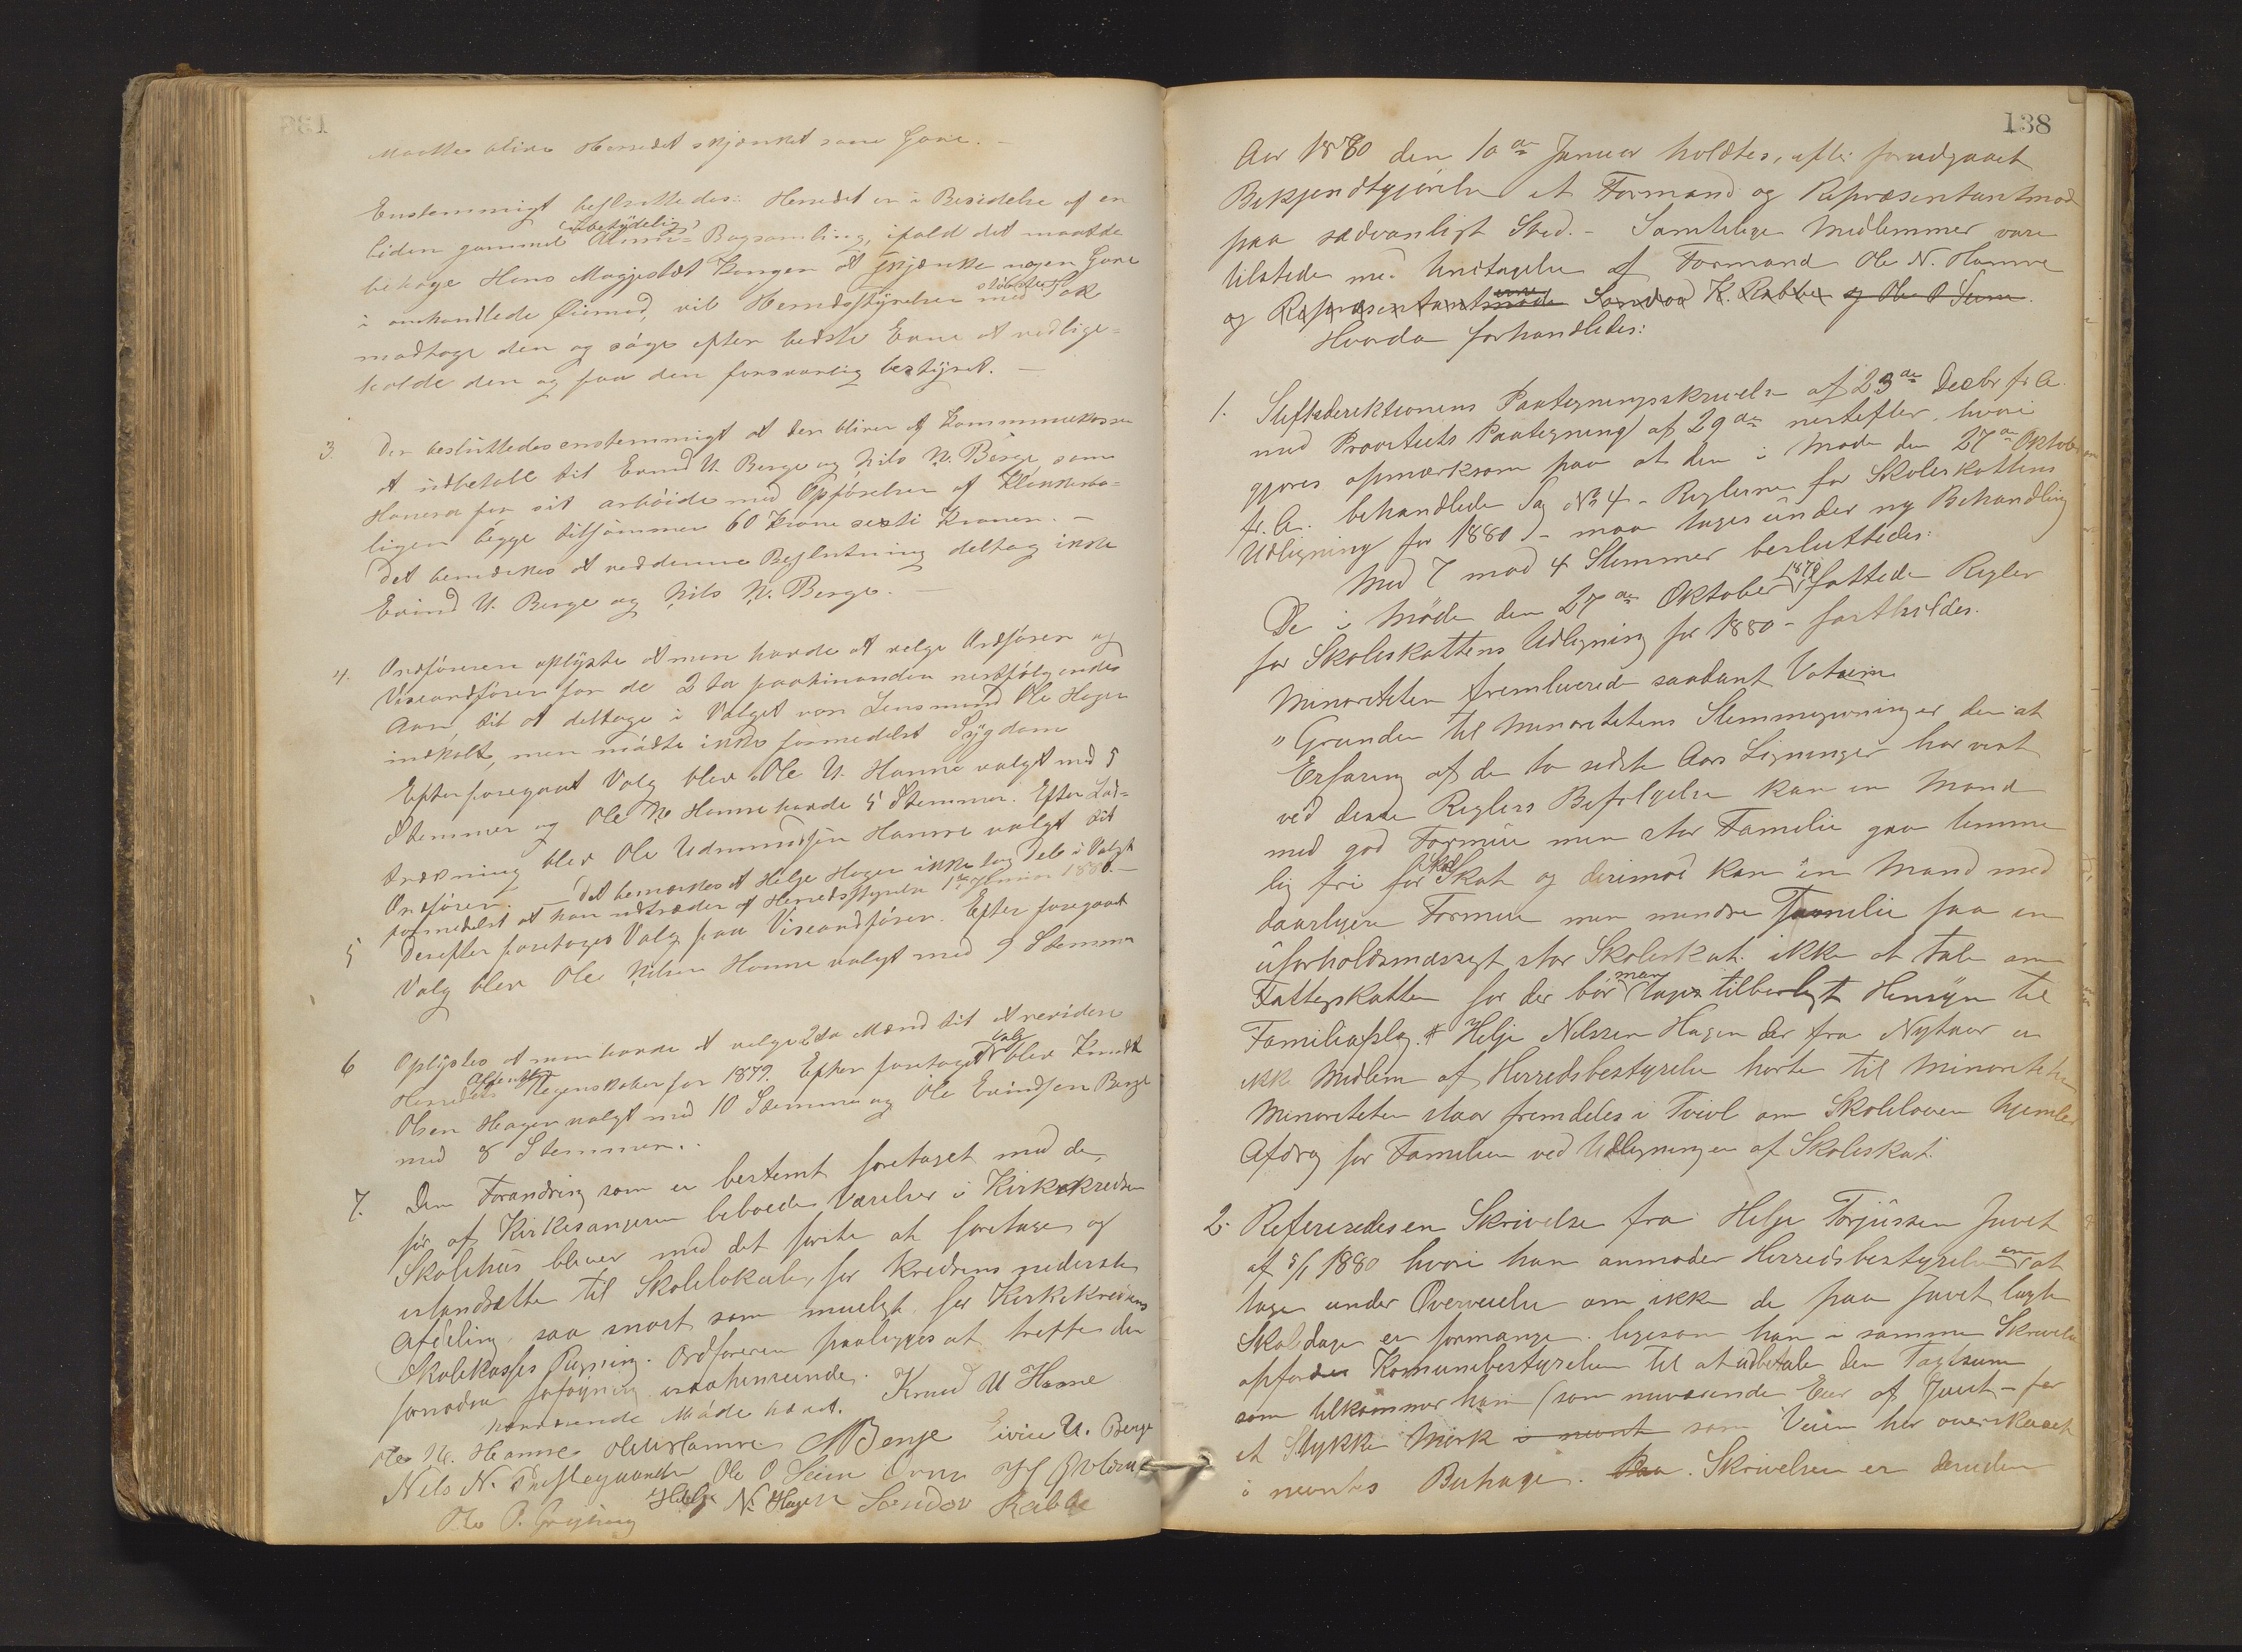 Maatte blive Herredet skjænket som Gave. –
Enstemmigt besluttedes: Herredet er i Besidelse af en
liden gammel (ubetydelig) Almu= Bogsamling, ifald det maatte
behage Hans Magjestæt Kongen at skjænke nogen Gave
i omhandlede Øiemed, vil Herredsstyrelsen med Tak
modtage den og søge efter bedste Evne at vedlige=
holde den og faa den forsvarlig bestyret. –
3. Der besluttedes enstemmigt at der bliver af Kommunekassen
at udbetale til Eivind U. Berge og Nils N. Berge som
Honorar for sit arbeide med Opførelsen af Klokkerbo=
ligen begge tilsammen 60 Kroner sexti Kroner. –
Det bemerkes at ved denne Beslutning deltog ikke
Eivind U. Berge og Nils N. Berge. –
4. Ordføreren oplyste at man havde at velge Ordfører og
Viseordfører for de 2 to paahinanden nestfølgendes
Aar, til at deltage i Valget var Lensmand Ole Hagen
indkalt, men mødte ikke formedelst Sygdom
Efter foregaaet Valg blev Ole U. Hamre valgt med 5
Stemmer og Ole N. Hamre havde 5 Stemmer. Efter Lod=
trækning blev Ole Udmundsen Hamre valgt til
Ordfører. – Det bemærkes at Helge Hagen ikke tog Del i Valget
formedelst at han udtræder af Herredsstyrelsen 1ste Januar 1880. –
5 Derefter foretoges Valg paa Viseordfører. Efter foregaaet
Valg blev Ole Nilsen Hamre valgt med 9 Stemmer
6 Oplystes at man havde at velge 2 to Mænd til at revidere
Herredets Regenskaber for 1879. Efter foretaget Valg blev Knudt
Olsen Hagen valgt med 10 Stemmer og Ole Eivindsen Berge
med 8 Stemmer.
7. Den Forandring som er bestemt foretaget med de,
før af Kirkesangeren beboede Værelser i Kirkekredsens
Skolehus bliver med det første at foretage og
istandsætte til Skolelokale, for Kredsens nederste
Afdeling, saa snart som mueligt for Kirkekredsens
Skolekasses Regning. Ordføreren paalegges at treffe den
fornødne føføyning isaahenseende.
nærværende Møde hævet. Knud U Hamre
Ole N. Hamre Ole U Hamre N N Berge Eivin U. Berge
Nils N. Ole O Seim
Helge N. Hagen Sandov Rabbe
Ole P.
138
Aar 1880 den 10de Januar holdtes, efter forudgaaet
Bekjendtgjørelse et Formand og Repræsentantmøde
paa sædvanligt Sted. – Samtelige Medlemmer vare
tilstede med Undtagelse af Formand Ole N. Hamre
og Repræsentantmøde erne Sandov K. Rabbe og Ole O Seim.
Hvorda forhandledes:
1. Stiftsderektionens Paategningsskrivelse af 23de Decbr f. A.
med Provstiets Paategning af 29de nestefter, hvori
gjøres opmærksom paa at den i Møde den 27de Oktober
f. A. behandlede Sag No 4 – Reglerne for Skoleskattens
Udligning for 1880 – maa tages under ny Behandling
Med 7 mod 4 Stemmer besluttedes:
De i Møde den 27de Oktober 1879 fattede Regler
for Skoleskattens Udligning for 1880 – fastholdes.
Minoriteten fremleverede saadant Votum
"Grunden til Minoritetens Stemmegivning er den at
Erfaring af de to sidste Aars Ligninger har vist
ved disse Reglers Befølgelse kan en Mand
med god Formue men stor Familie gaa temme
lig fri for Skole Skat og derimod kan en Mand med
daarligere Formue men mindre Familie faa en
uforholdsmæssigt stor Skoleskat ikke at tale om
Fattigskatten for der bør man tage tilbørligt Hensyn til
Familieaflæg. Helje Nilssen Hagen der fra Nytaar er
ikke Medlem af Herredsbestyrelsen hørte til Minoriteten
Minoriteten staar fremdeles i Tvivl om Skoleloven hjemler
Afdrag for Familien ved Udligningen af Skoleskat.
2. Refereredes en Skrivelse fra Helje Torjussen Juvet
af 5/1 1880 hvori han anmoder Herredsbestyrelsen om at
tage under Overveielse om ikke de paa Juvet lagte
Skoldage er formange. ligesom han i samme Skrivelse
opfordrer Kommunebestyrelsen til at udbetale den Taxtsum
som tilkommer ham (som nuværende Eier af Juvet – for
et Stykke Mark i nevnt som Veien her overskaaet
i nevntes Buhage. Paa. Skrivelsen er desuden